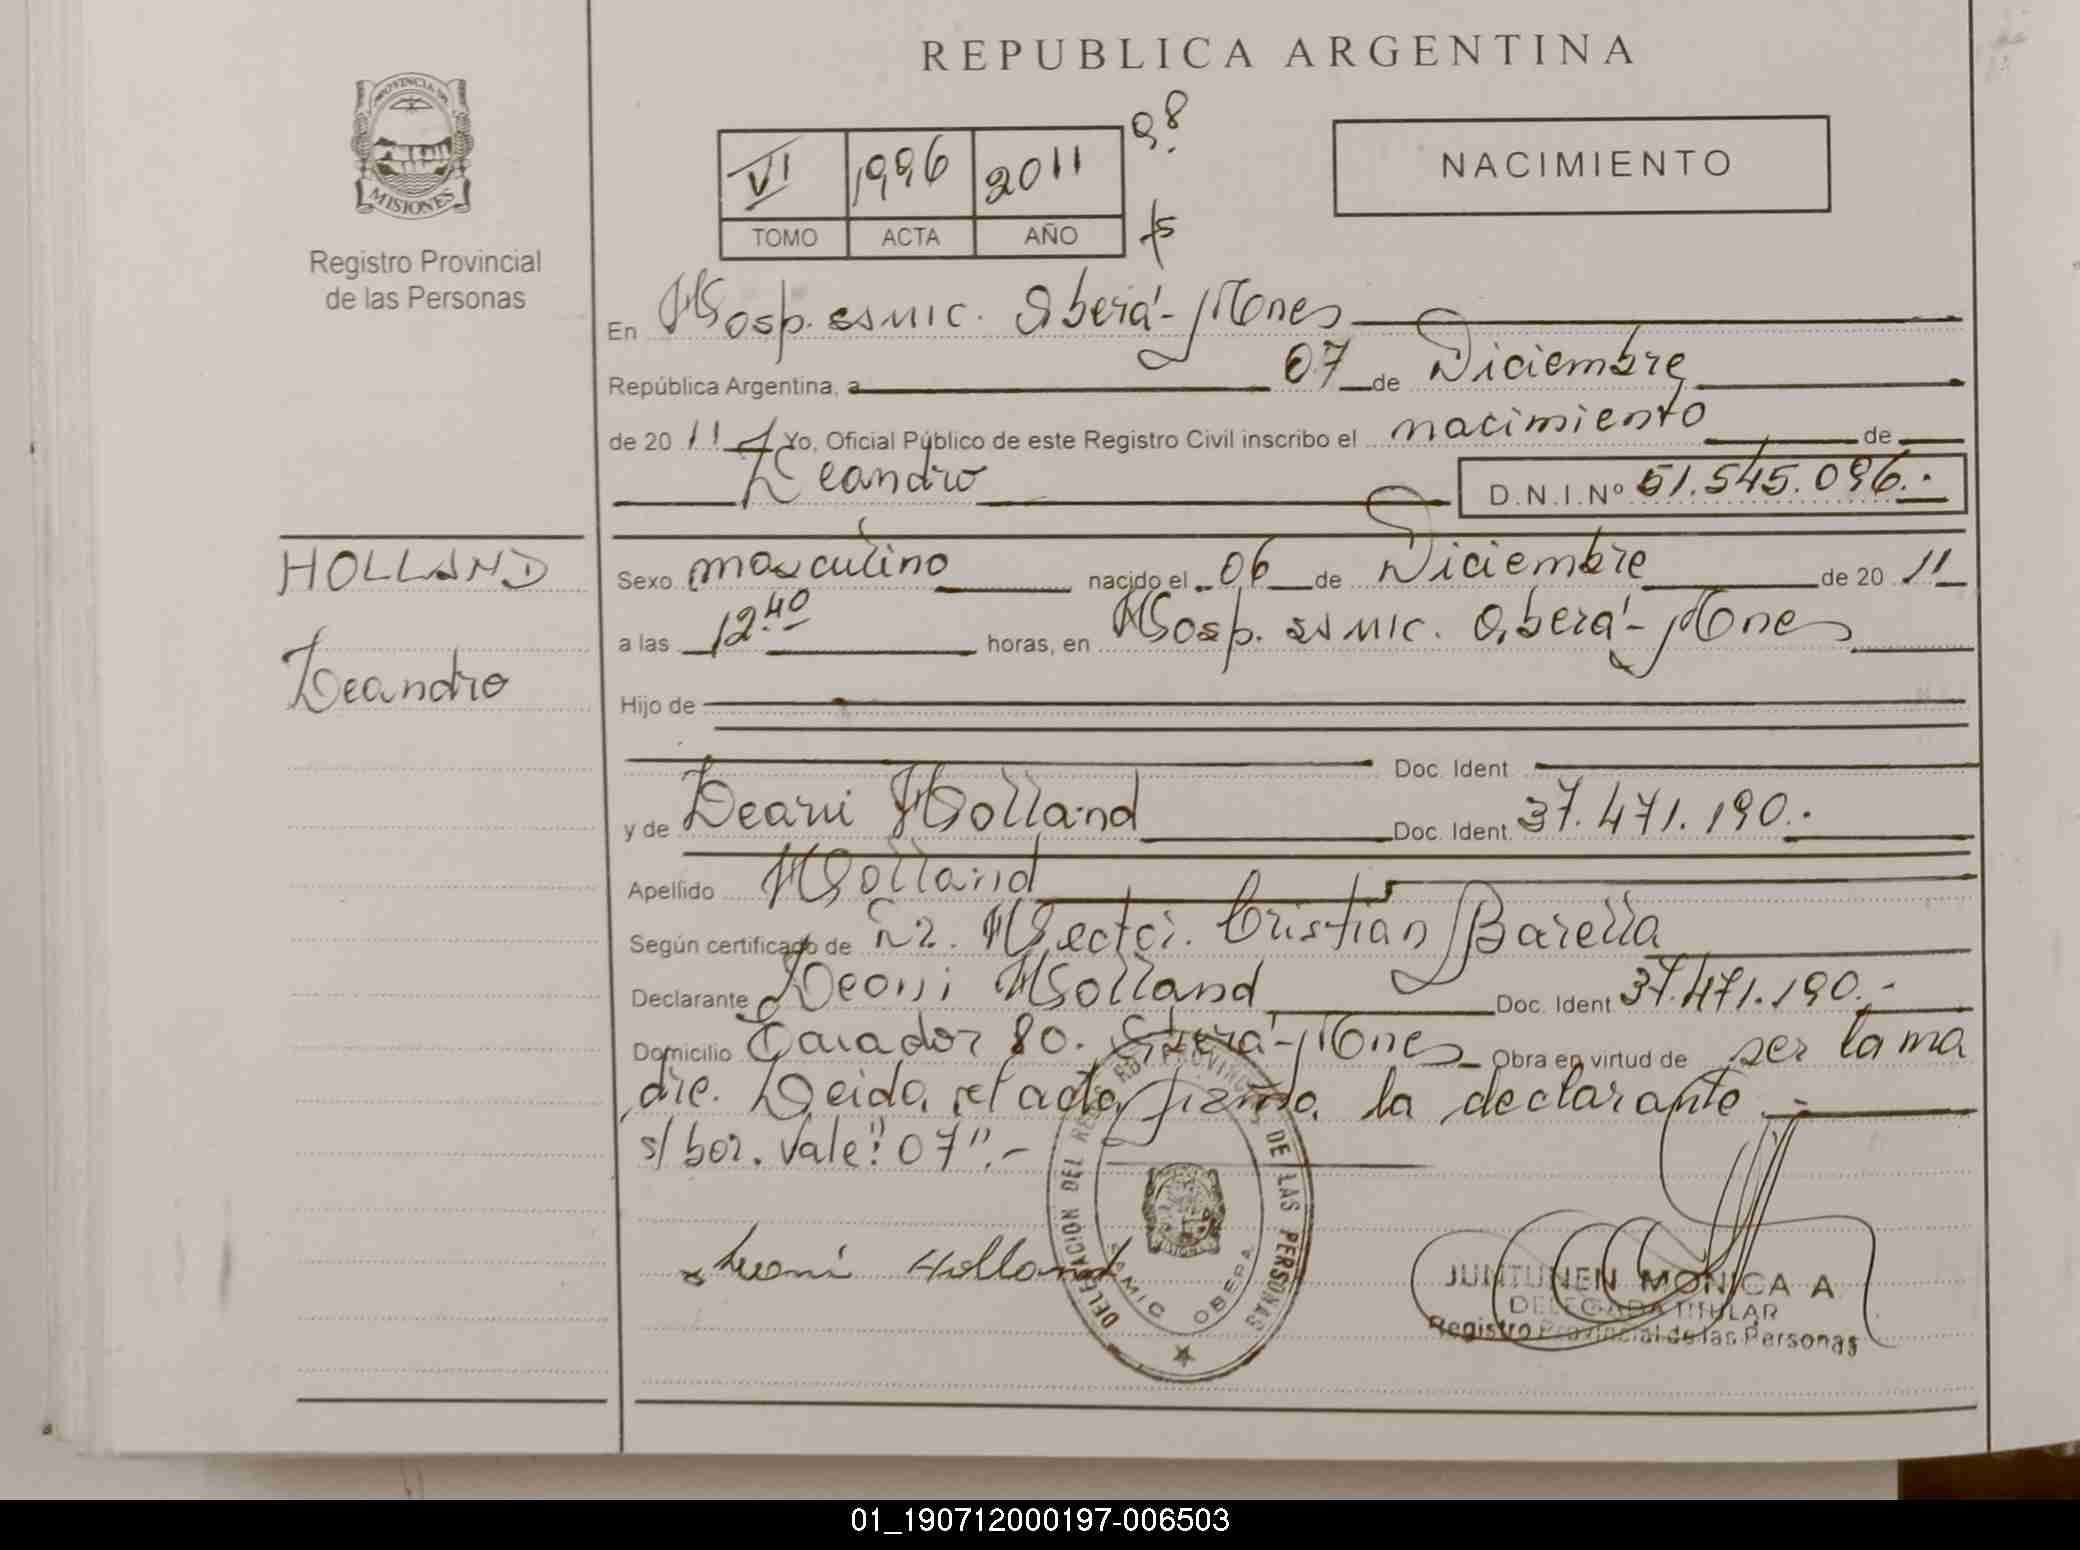 REPUBLICA ARGENTINA
PROVINCIA DE
MISIONES
Registro Provincial
de las Personas
VI 1996 2011
TOMO ACTA AÑO
98
NACIMIENTO
En Hosp. SAMIC. Oberá - Mones
República Argentina, a 07 de Diciembre
de 2011 Yo, Oficial Público de este Registro Civil inscribo el nacimiento de
Leandro D.N.I.Nº 51.545.096.-
HOLLAND
Leandro
Sexo masculino nacido el 06 de Diciembre de 2011
a las 12.40 horas, en Hosp. SAMIC. Oberá - Mones
Hijo de
Doc. Ident
y de Leani Holland Doc. Ident. 37.471.190.-
Apellido Holland
Según certificado de Dr. Hector. Cristian Barella
Declarante Leoni Holland Doc. Ident 37.471.190.-
Domicilio 80. Oberá - Mones Obra en virtud de ser la ma
dre. Leida el acta firma la declarante.-
s/ bor. Vale: "07".-
Leoni Holland
DELEGACION DEL REGISTRO PROVINCIAL DE LAS PERSONAS
SAMIC OBERA
JUNTUNEN MONICA A
DELEGADA TITULAR
Registro Provincial de las Personas
01_190712000197-006503